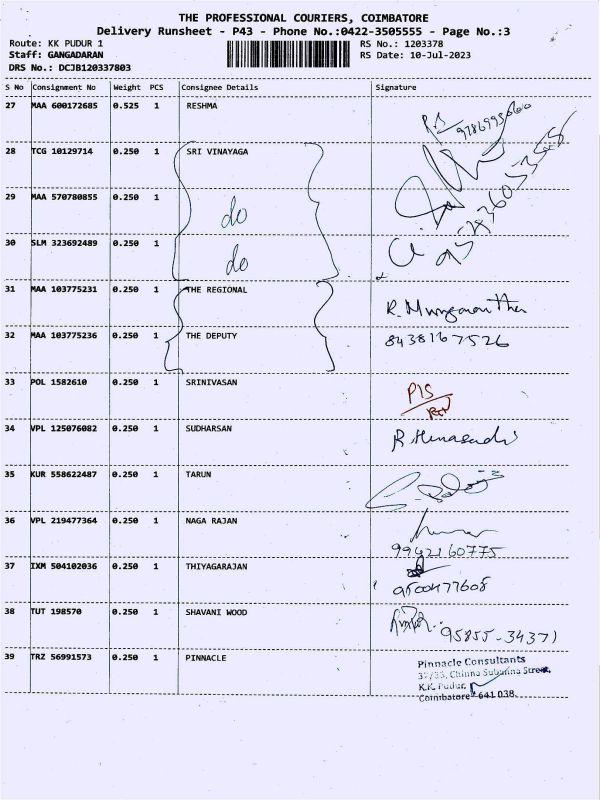 THE PROFESSIONAL COURIERS, COIMBATORE
Delivery Runsheet - P43 - Phone No.:0422-3505555 - Page No.:3
Route: KK PUDUR 1 RS No.: 1203378
Staff: GANGADARAN RS Date: 10-Jul-2023
DRS No.: DCJB120337803
S No Consignment No Weight PCS Consignee Details Signature
27 MAA 600172685 0.525 1 RESHMA
28 TCG 10129714 0.250 1 SRI VINAYAGA
29 MAA 570780855 0.250 1 do
30 SLM 323692489 0.250 1 do
31 MAA 103775231 0.250 1 THE REGIONAL
32 MAA 103775236 0.250 1 THE DEPUTY 8438167526
33 POL 1582610 0.250 1 SRINIVASAN
34 VPL 125076082 0.250 1 SUDHARSAN
35 KUR 558622487 0.250 1 TARUN
36 VPL 219477364 0.250 1 NAGA RAJAN
9942160775
37 IXM 504102036 0.250 1 THIYAGARAJAN
9500477608
38 TUT 198570 0.250 1 SHAVANI WOOD
95855-34371
39 TRZ 56991573 0.250 1 PINNACLE
Pinnacle Consultants
Chinna Subanna Street,
K.K. Pudur,
Coimbatore 641 038.